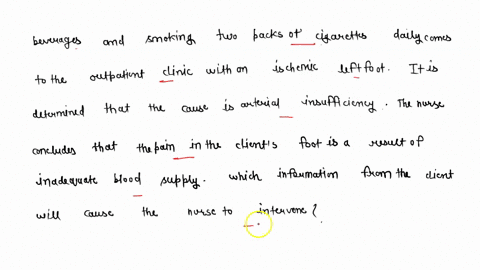 beverages and smoking two packs of cigarettes daily comes
to the outpatient clinic with an ischemic left foot. It is
determined that the cause is arterial insufficiency. The nurse
concludes that the pain in the client's foot is a result of
inadequate blood supply. which information from the client
will cause the nurse to intervene?